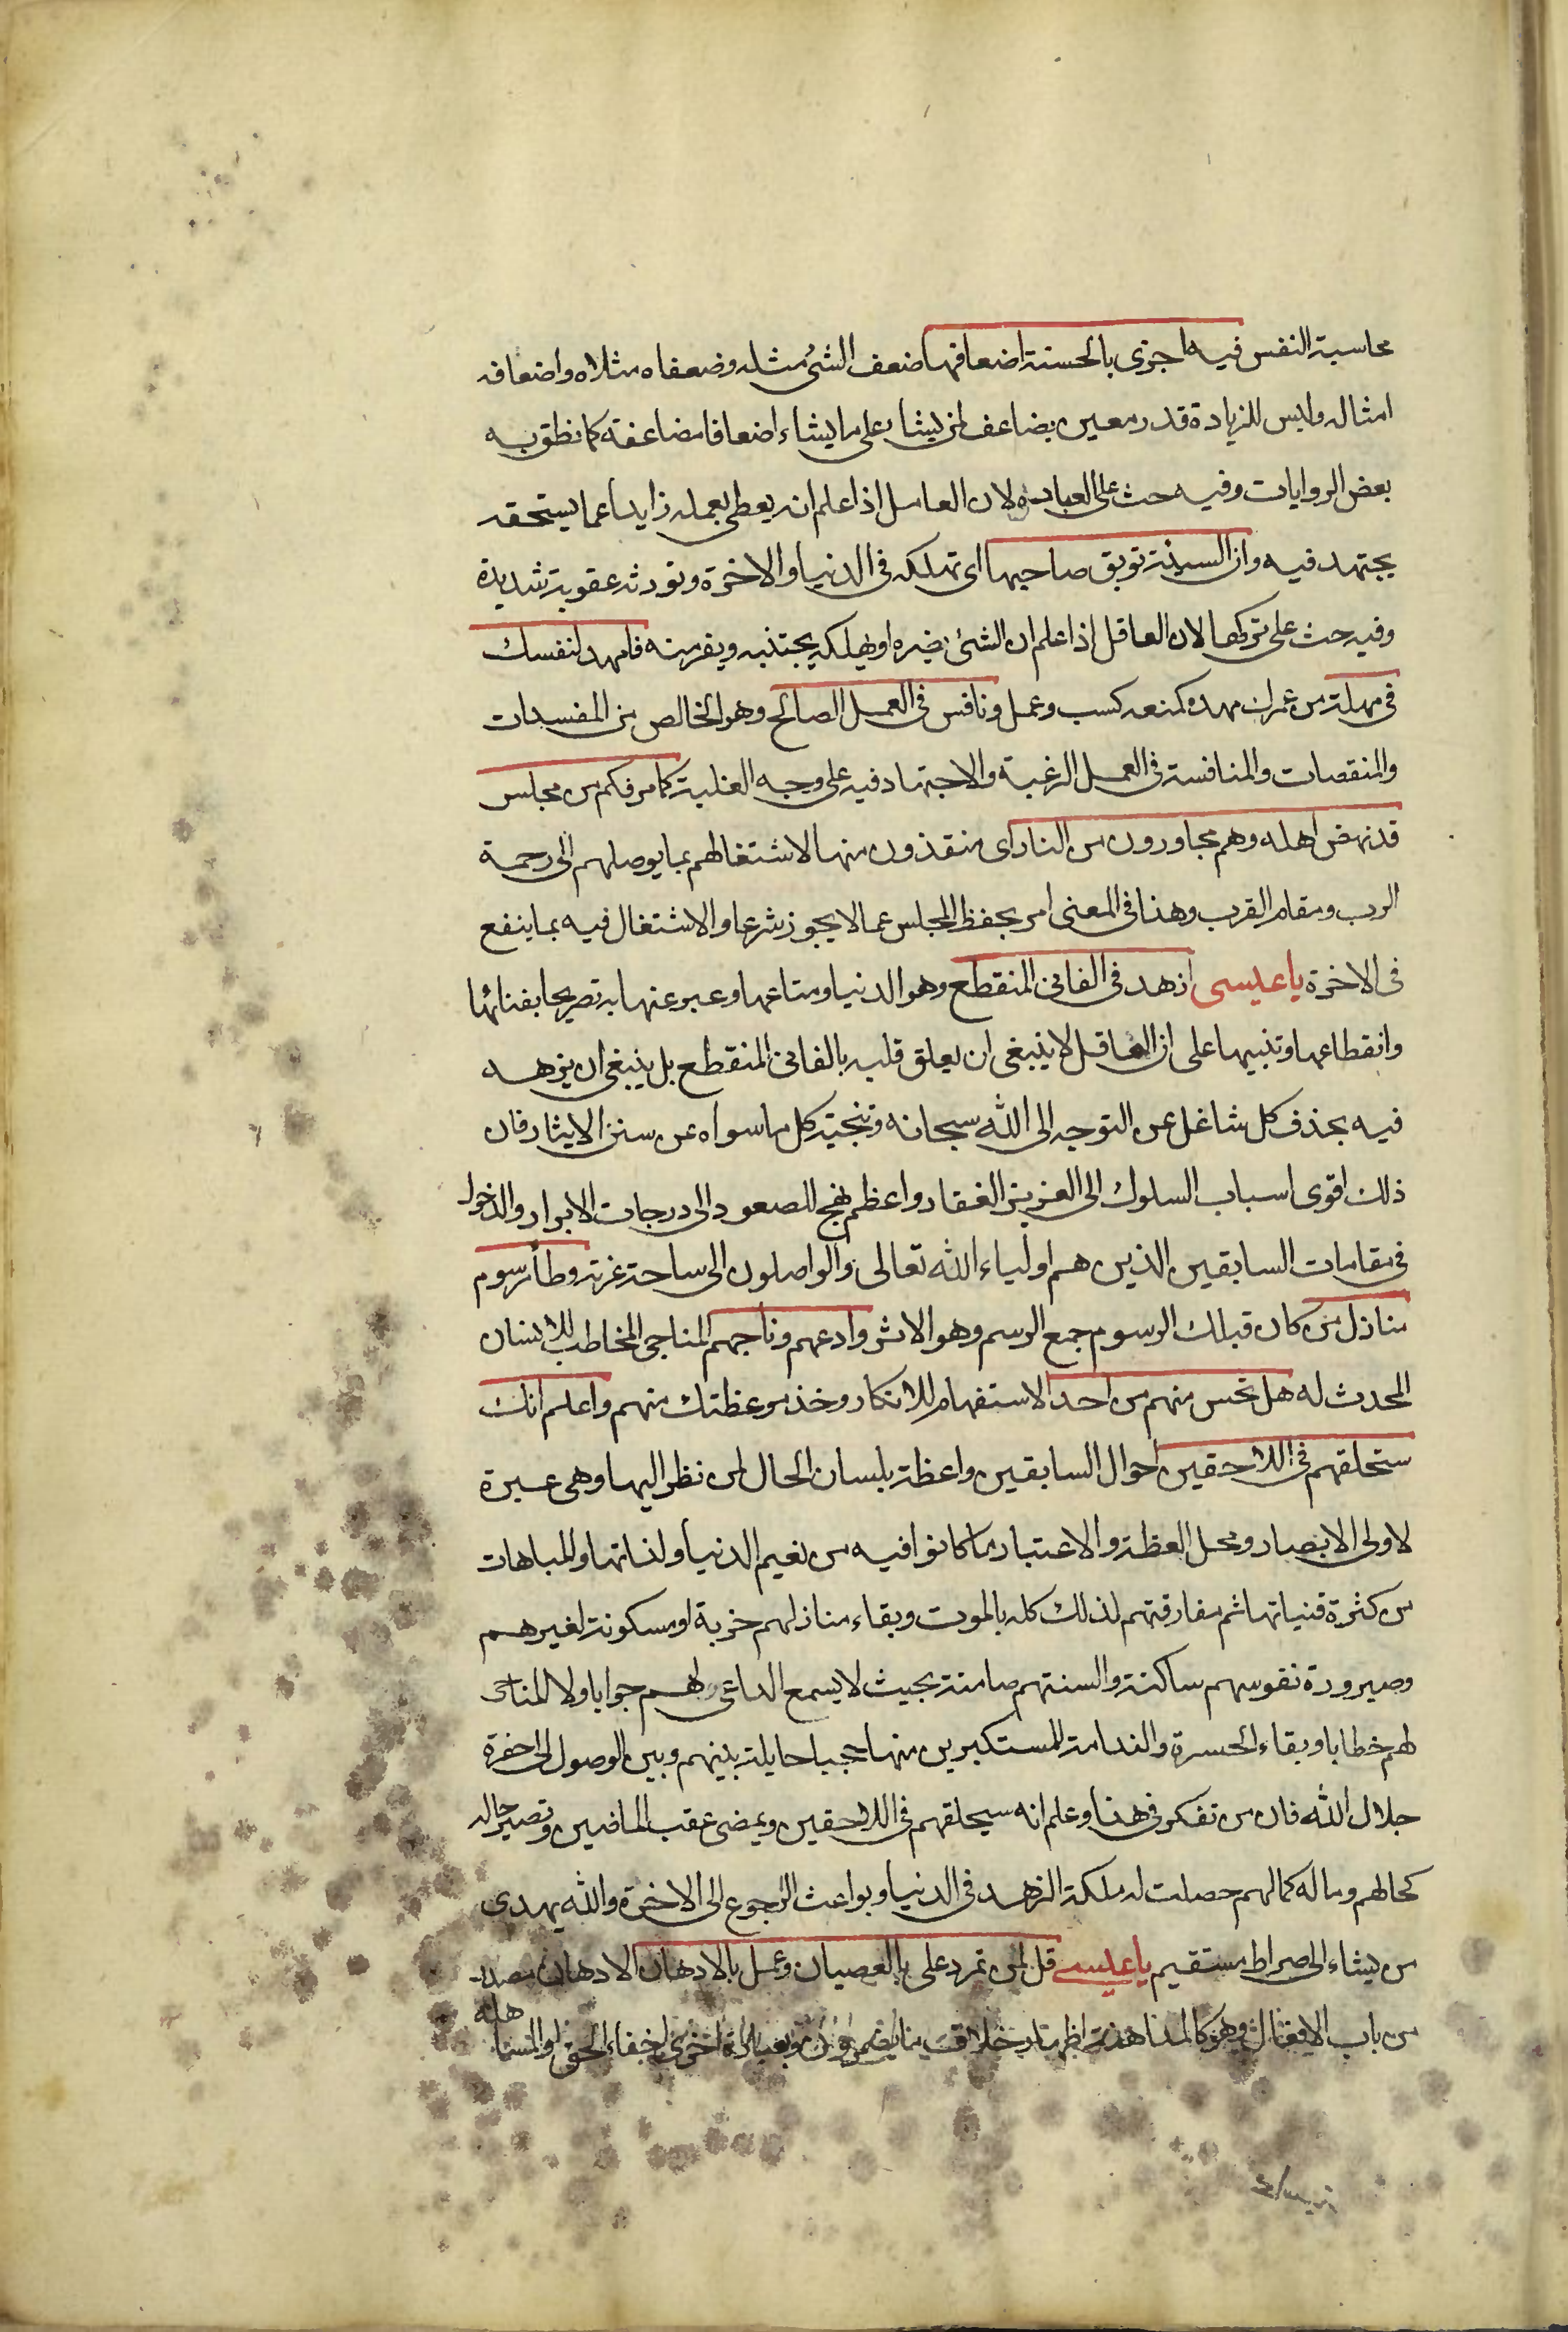 محاسبة النفس فيه اجزى بالحسنة اضعافها ضعف الشئ مثله وضعفاه مثلاه واضعافه
امثاله وليس للزيادة قدر معين يضاعف لمن يشاء على ما يشاء اضعافا مضاعفة كما نطق به
بعض الروايات وفيه حث على العبادة لان العامل اذا علم انه يعطى بعمله زايدا عما يستحقه
يجتهد فيه وان السيئة توبق صاحبها اى تهلكه فى الدنيا والاخرة وتورثه عقوبة شديدة
وفيه حث على تركها لان العاقل اذا علم ان الشئ يضره او يهلكه يجتنبه ويفر منه فامهد لنفسك
فى مهلة من عمرك مهده كمنعه كسب وعمل ونافس فى العمل الصالح وهو الخالص من المفسدات
والمنقصات والمنافسة فى العمل الرغبة والاجتهاد فيه على وجه الغلبة كما مر فكم من مجلس
قد نهض اهله وهم مجاورون من النار اى منقذون منها لاشتغالهم بما يوصلهم الى رحمة
الرب ومقام القرب وهذا فى المعنى امر بحفظ المجلس عما لا يجوز شرعا والاشتغال فيه بما ينفع
فى الاخرة يا عيسى ازهد فى الفانى المنقطع وهو الدنيا ومتاعها وعبر عنها به تصريحا بفنائها
وانقطاعها وتنبيها على ان العاقل لا ينبغى ان يعلق قلبه بالفانى المنقطع بل ينبغى ان يزهد
فيه بحذف كل شاغل عن التوجه الى الله سبحانه وتنحية كل ما سواه عن سنن الايثار فان
ذلك اقوى اسباب السلوك الى العزيز الغفار واعظم نهج للصعود الى درجات الابرار والدخول
فى مقامات السابقين الذين هم اولياء الله تعالى والواصلون الى ساحة عزته وطأ رسوم
منازل من كان قبلك الرسوم جمع الرسم وهو الاثر وادعهم وناجهم المناجى المخاطب للانسان
المحدث له هل تحس منهم من احد الاستفهام للانكار وخذ موعظتك منهم واعلم انك
ستحلقهم فى اللاحقين احوال السابقين واعظة بلسان الحال لمن نظر اليها وهى عبرة
لاولى الابصار ومحل العظة والاعتبار ما كانوا فيه من نعيم الدنيا ولذاتها والمباهات
من كثرة قنياتها ثم مفارقتهم لذلك كله بالموت وبقاء منازلهم خربة او مسكونة لغيرهم
وصيرورة نفوسهم ساكنة والسنتهم صامتة بحيث لا يسمع الداعى لهم جوابا ولا المناجى
لهم خطابا وبقاء الحسرة والندامة للمستكبرين منها حجبا حايلة بينهم وبين الوصول الى حضرة
جلال الله فان من تفكر فى هذا وعلم انه سيحلقهم فى اللاحقين ويمضى عقب الماضين وتصير حاله
كحالهم وماله كمالهم حصلت له ملكة الزهد فى الدنيا وبواعث الرجوع الى الاخرة والله يهدى
من يشاء الى صراط مستقيم يا عيسى قل لمن تمرد على بالعصيان وعمل بالادهان الادهان مصدر
من باب الافعال وهو كالمداهنة اظهار خلاف ما يضمر وبعبارة اخرى اخفاء الحق والمساهلة